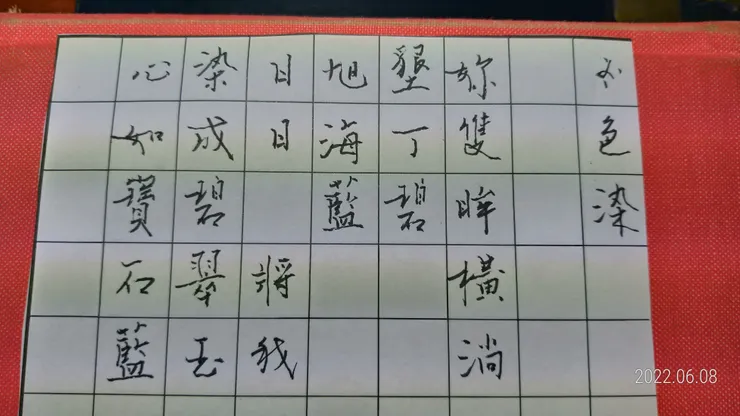 色染
妳隻眸橫淌
墾丁碧
旭海藍
日日 將我
染成碧翠玉
心如寶石藍
2022.06.08